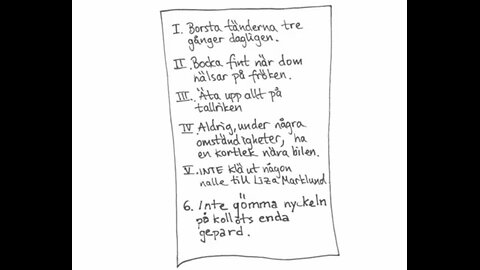 I. Borsta tänderna tre
gånger dagligen.
II. Bocka fint när dom
hälsar på fröken.
III. Äta upp allt på
tallriken
IV. Aldrig, under några
omständigheter, ha
en kortlek nära bilen.
V. INTE klä ut någon
nalle till Liza Marklund
6. Inte gömma nyckeln
på kollots enda
gepard.